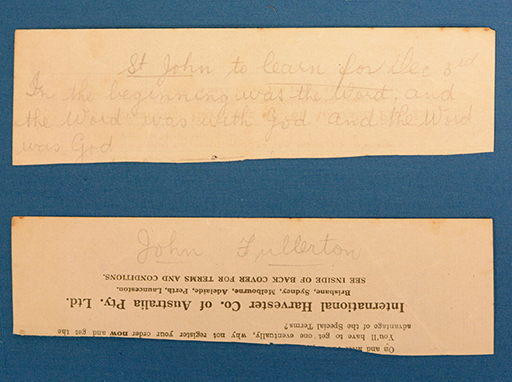 St John to learn for Dec 3rd
In the beginning was the Word, and
the Word was with God and the Word
was God
John Fullerton
SEE INSIDE OF BACK COVER FOR TERMS AND CONDITIONS.
Brisbane, Sydney, Melbourne, Adelaide, Perth, Launceston.
International Harvester Co. of Australia Pty. Ltd.
advantage of the Special Terms?
You'll have to get one eventually, why not register your order now and get the
On and after